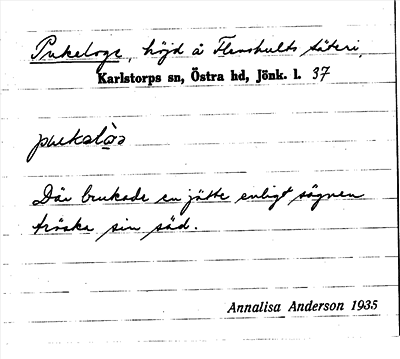 Pukeloge, höjd å Flenshults säteri,
Karlstorps sn, Östra hd, Jönk. l. 37
Där brukade en jätte enligt sägnen
tröska sin säd.
Annalisa Anderson 1935